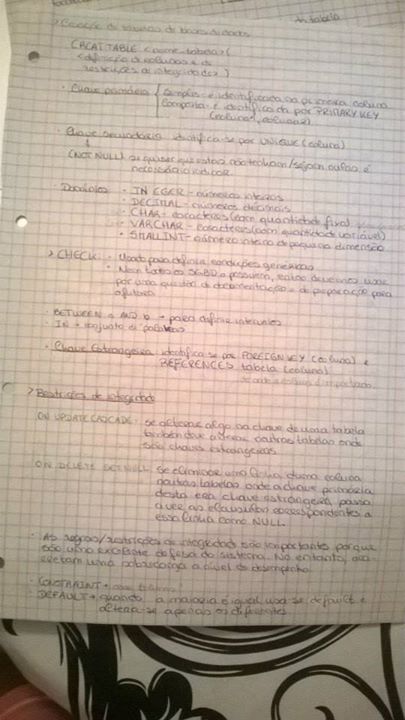 tabela
> Criação de tabelas de bases de dados
CREATE TABLE <nome_tabela> (
<definição de colunas e de
restrições de integridade> )
· Chave primária { Simples - é identificada na primeira coluna
Composta - é identificada por PRIMARY KEY
(coluna1, coluna2)
· Chave secundária identifica-se por UNIQUE (coluna)
(NOT NULL) se quiser que estas não tenham/sejam nulas é
necessário indicar.
· Domínios · INTEGER - números inteiros
· DECIMAL - números decimais
· CHAR - caracteres (com quantidade fixa)
· VARCHAR - caracteres (com quantidade variável)
· SMALLINT - número inteiro de pequena dimensão
> CHECK: · Usado para definir condições genéricas
· Nem todos os SGBD o possuem, então devemos usar
por uma questão de documentação e de preparação para
o futuro
· BETWEEN a AND b → para definir intervalos
· IN → conjunto de palavras
· Chave Estrangeira: identifica-se por FOREIGN KEY (coluna) e
REFERENCES tabela (coluna)
> Restrições de integridade
ON UPDATE CASCADE: se alterar algo na chave de uma tabela
também deve alterar noutras tabelas onde
são chaves estrangeiras
ON DELETE SET NULL: Se eliminar uma linha duma coluna
noutras tabelas onde a chave primária
desta era chave estrangeira, passa
a ver as correspondentes a
essa linha como NULL.
· As regras/restrições de integridade são importantes porque
são uma excelente defesa do sistema. No entanto, aca-
rretam uma sobrecarga a nível de desempenho
· CONSTRAINT →
· DEFAULT → quando a maioria é igual usa-se default e
altera-se apenas os diferentes